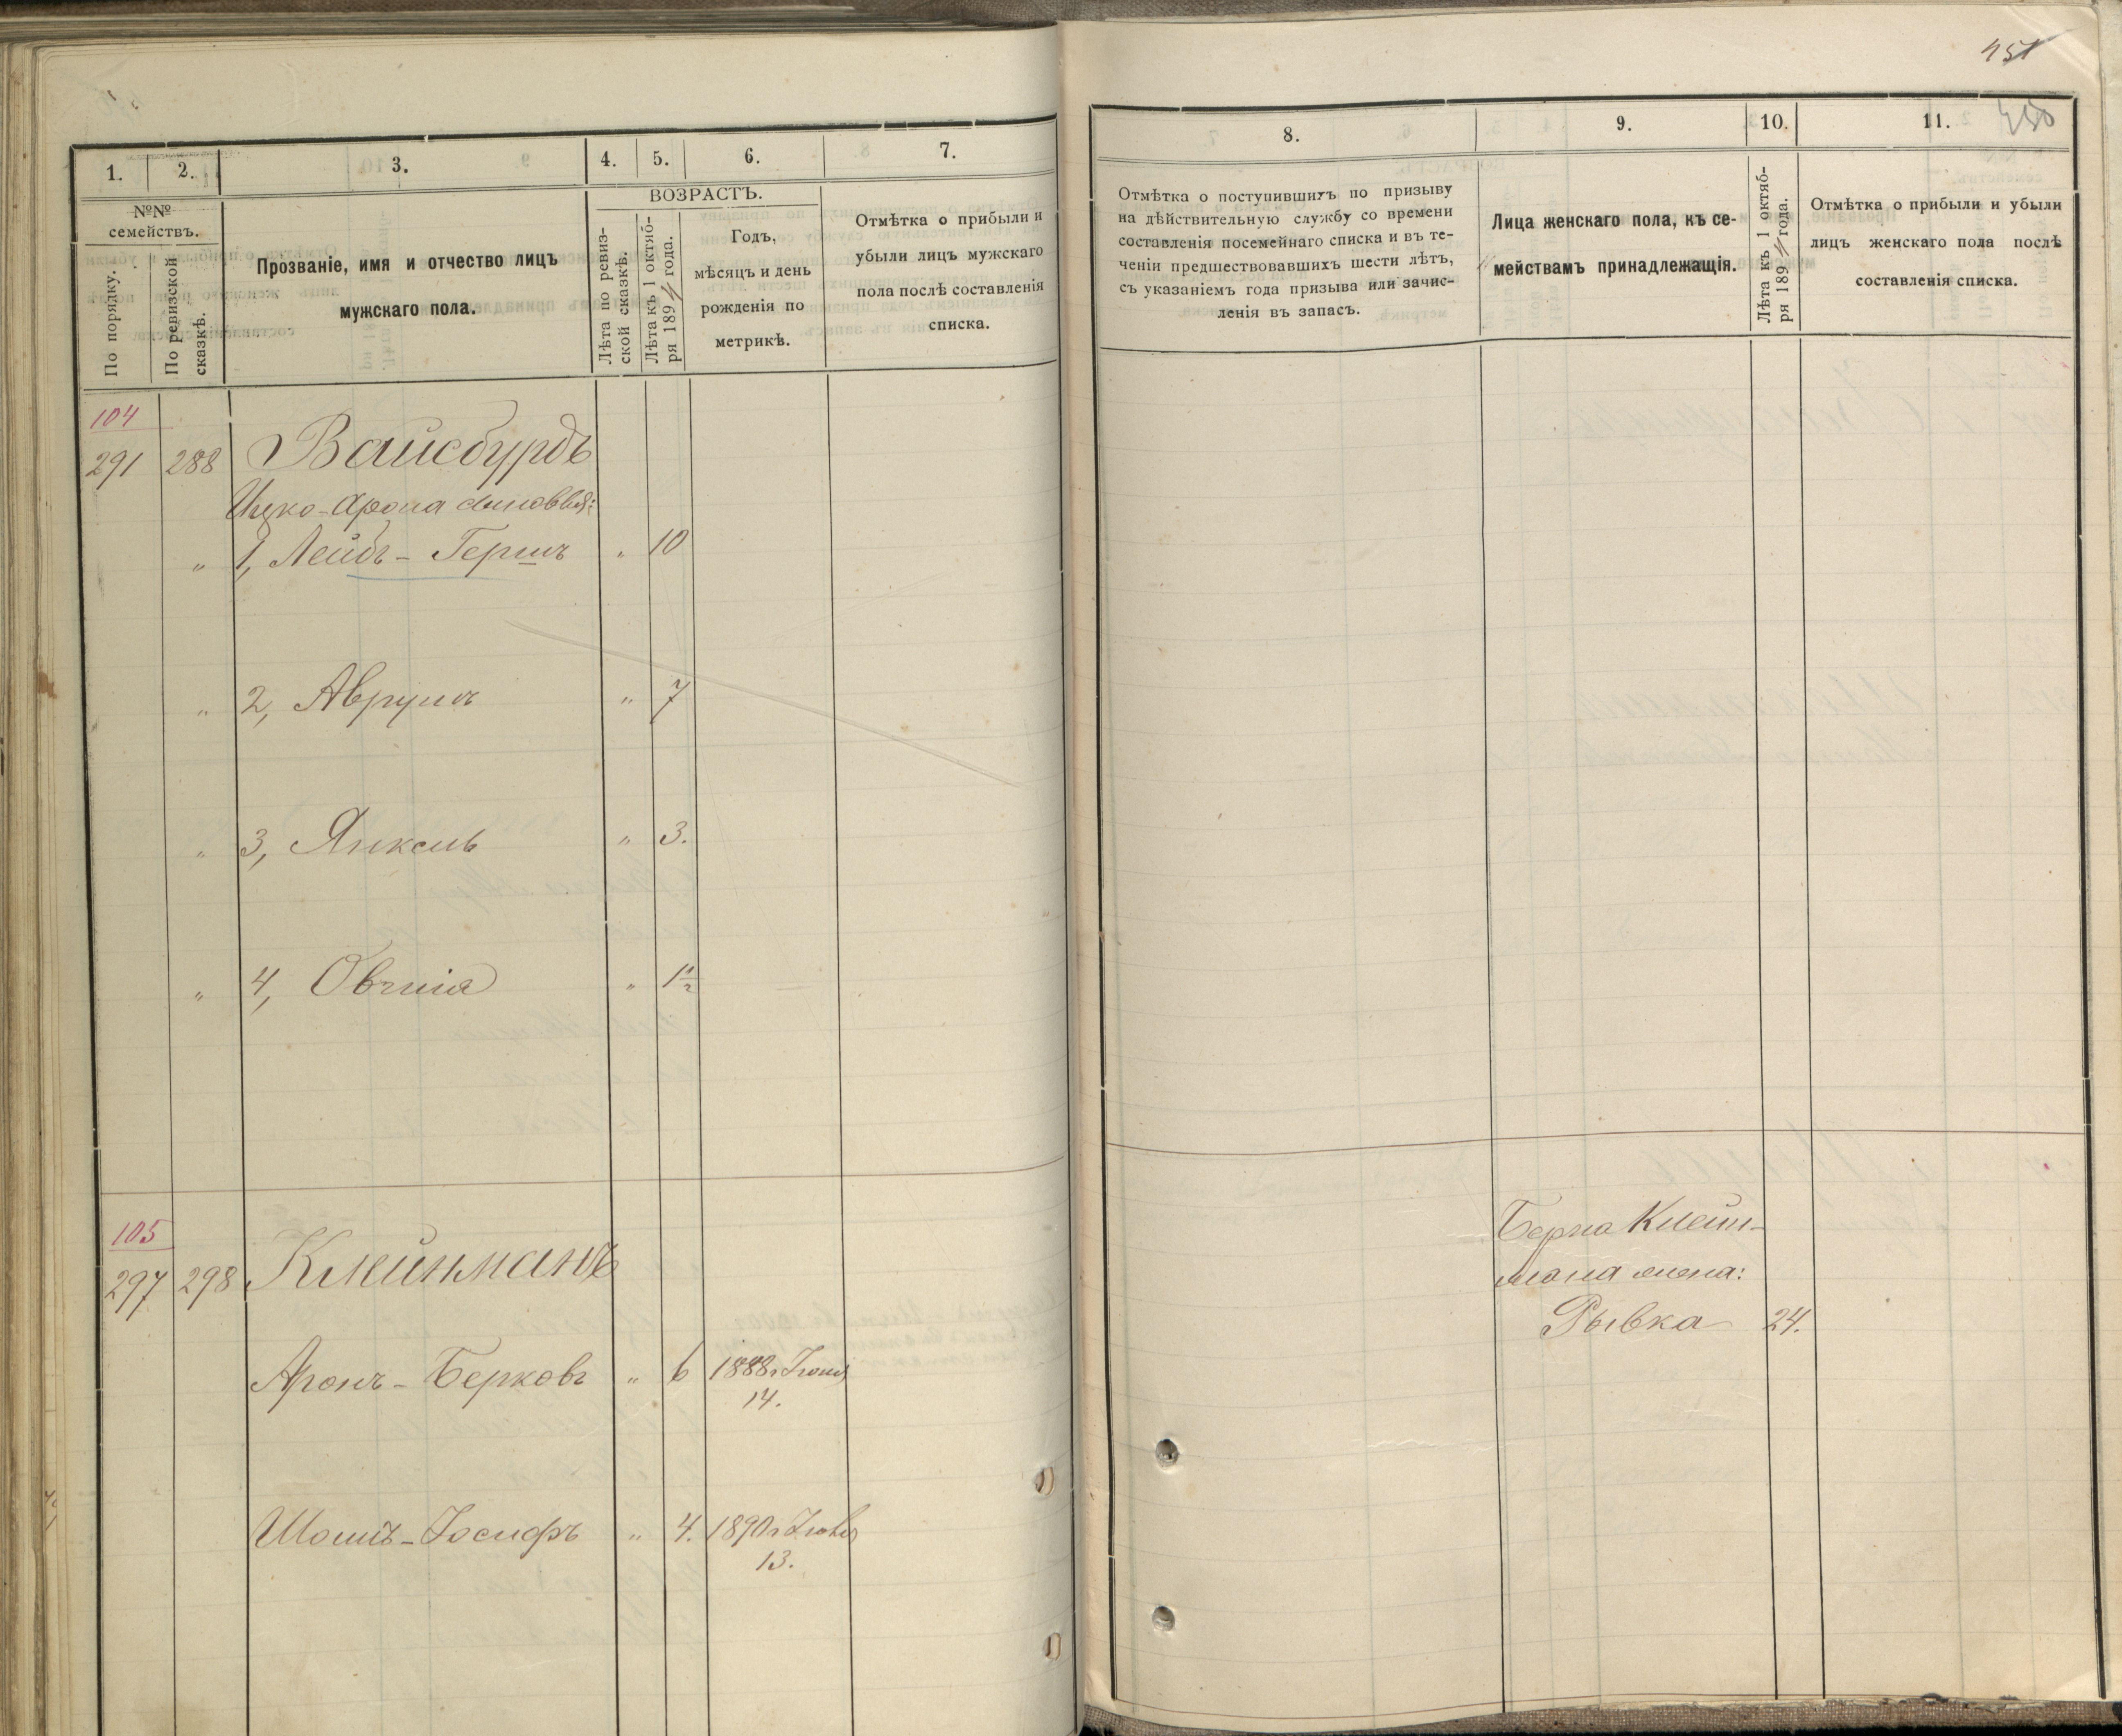 451
450
1. 2. 3. 4. 5. 6. 7.
№№ семействъ.
По порядку.
По ревизской сказкѣ.
Прозваніе, имя и отчество лицъ
мужскаго пола.
ВОЗРАСТЪ.
Лѣта по ревиз-
ской сказкѣ.
Лѣта къ 1 октяб-
ря 1894 года.
Годъ,
мѣсяцъ и день
рожденія по
метрикѣ.
Отмѣтка о прибыли и
убыли лицъ мужскаго
пола послѣ составленія
списка.
104
291 288 Вайсбурдъ
Ицко-Арона сыновья:
" 1, Лейбъ-Гершъ " 10
" 2, Аврумъ " 7
" 3, Янкель " 3.
" 4, Овшія " 1½
105
297 298 Клейнманъ
Аронъ-Берковъ " 6 1888 г Іюня
14.
Шоимъ-Іосифъ " 4. 1890 г
13.
8. 9. 10. 11.
Отмѣтка о поступившихъ по призыву
на дѣйствительную службу со времени
составленія посемейнаго списка и въ те-
ченіи предшествовавшихъ шести лѣтъ,
съ указаніемъ года призыва или зачис-
ленія въ запасъ.
Лица женскаго пола, къ се-
мействамъ принадлежащія.
Лѣта къ 1 октяб-
ря 1894 года.
Отмѣтка о прибыли и убыли
лицъ женскаго пола послѣ
составленія списка.
Берка Клейн-
мана жена:
Рывка 24.